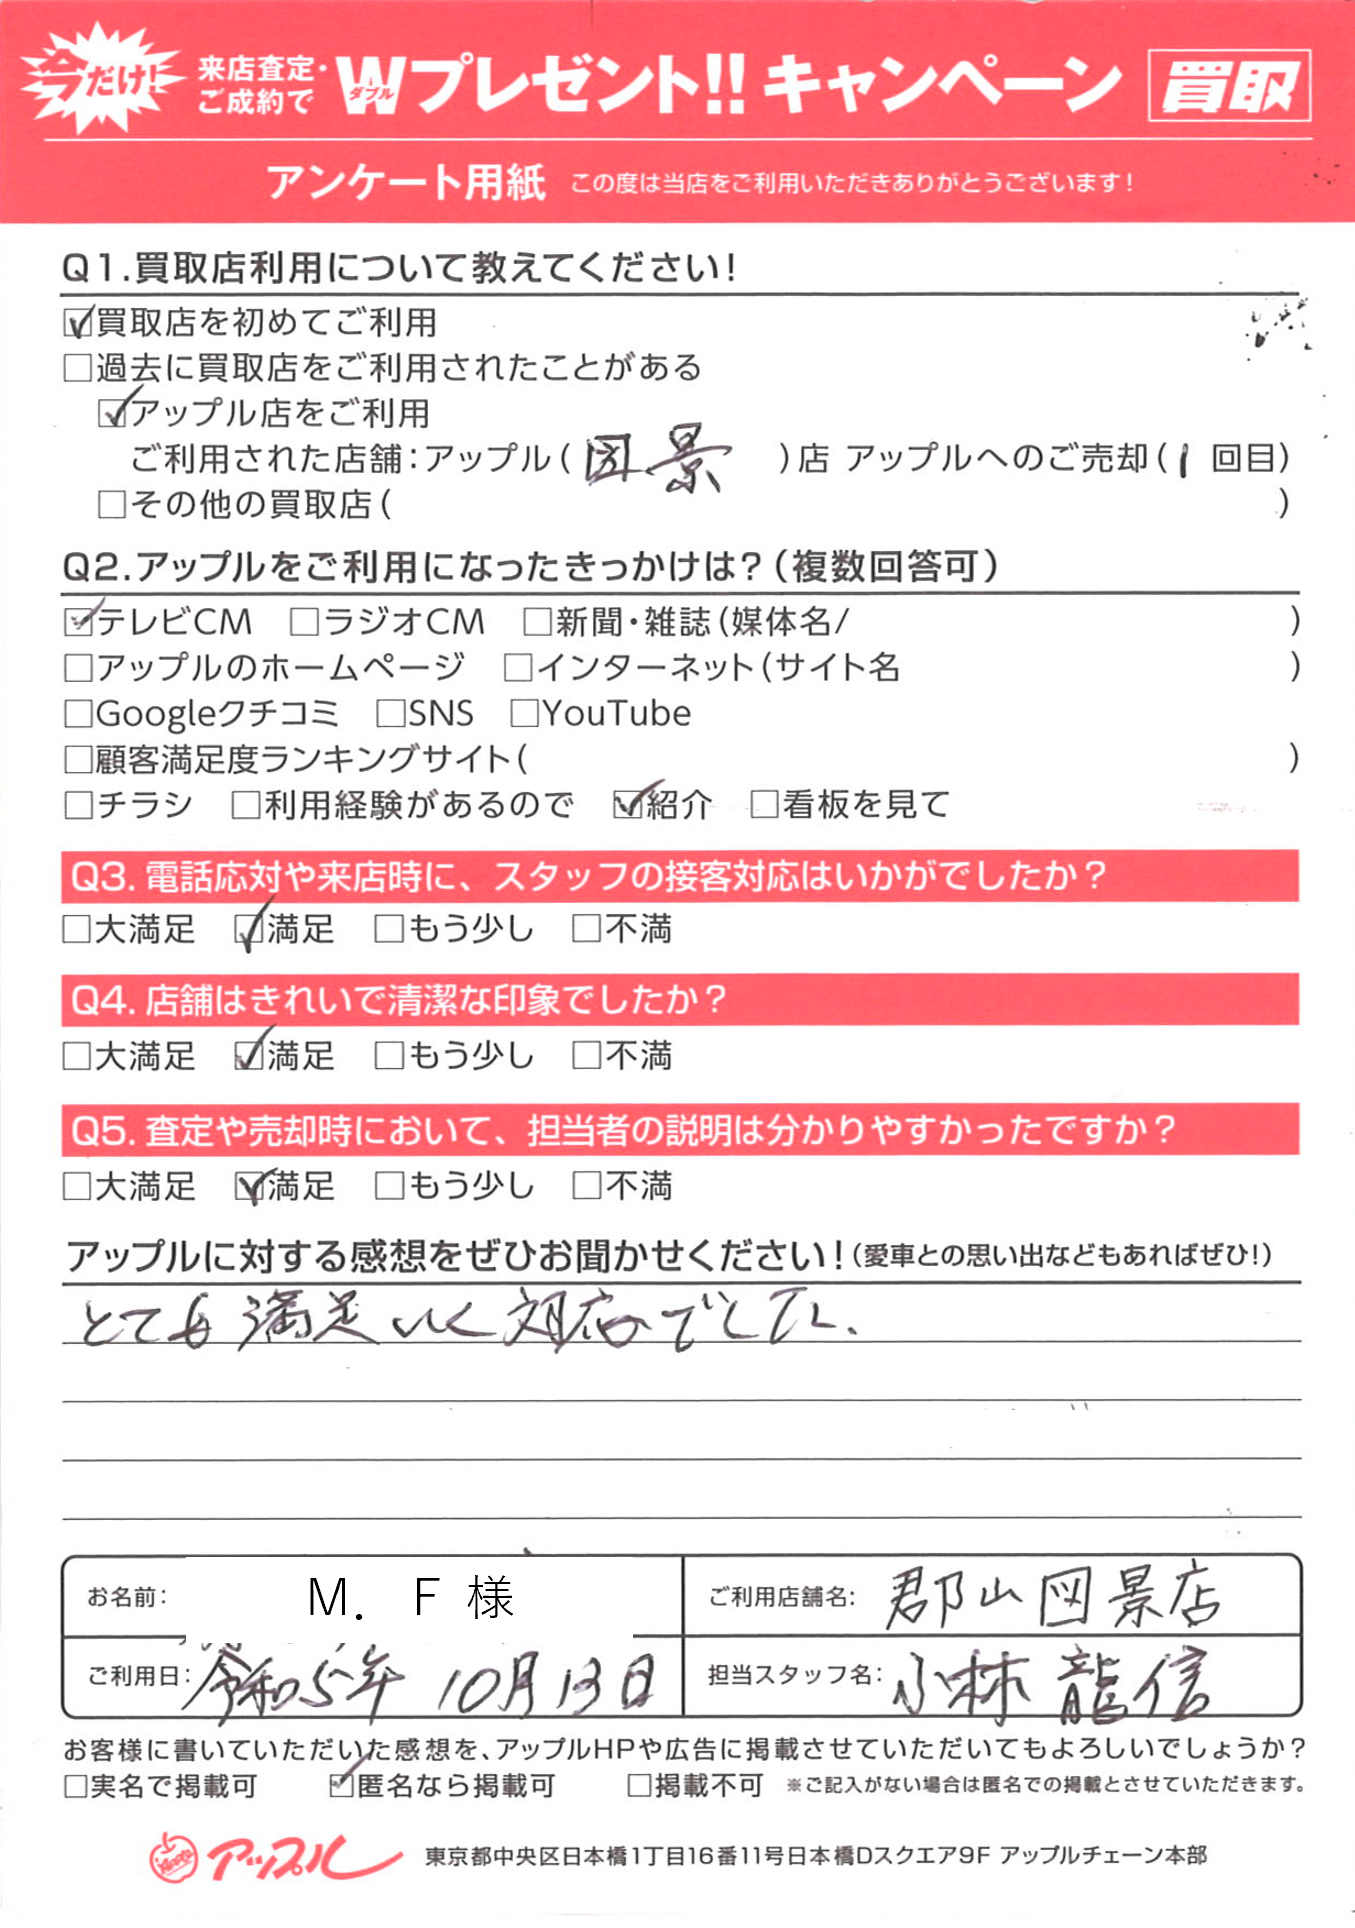 今だけ!
来店査定・
ご成約で
Wプレゼント!! キャンペーン 買取
ダブル
アンケート用紙 この度は当店をご利用いただきありがとうございます!
Q1.買取店利用について教えてください!
☑買取店を初めてご利用
□過去に買取店をご利用されたことがある
☑アップル店をご利用
ご利用された店舗:アップル(図景)店 アップルへのご売却(1回目)
□その他の買取店( )
Q2.アップルをご利用になったきっかけは?(複数回答可)
☑テレビCM □ラジオCM □新聞・雑誌(媒体名/ )
□アップルのホームページ □インターネット(サイト名 )
□Googleクチコミ □SNS □YouTube
□顧客満足度ランキングサイト( )
□チラシ □利用経験があるので ☑紹介 □看板を見て
Q3. 電話応対や来店時に、スタッフの接客対応はいかがでしたか?
□大満足 ☑満足 □もう少し □不満
Q4. 店舗はきれいで清潔な印象でしたか?
□大満足 ☑満足 □もう少し □不満
Q5. 査定や売却時において、担当者の説明は分かりやすかったですか?
□大満足 ☑満足 □もう少し □不満
アップルに対する感想をぜひお聞かせください!(愛車との思い出などもあればぜひ!)
とても満足いく対応でした.
お名前: M. F 様 ご利用店舗名: 郡山図景店
ご利用日: 令和5年 10月13日 担当スタッフ名: 小林 龍信
お客様に書いていただいた感想を、アップルHPや広告に掲載させていただいてもよろしいでしょうか?
□実名で掲載可 ☑匿名なら掲載可 □掲載不可 ※ご記入がない場合は匿名での掲載とさせていただきます。
アップル 東京都中央区日本橋1丁目16番11号日本橋Dスクエア9F アップルチェーン本部